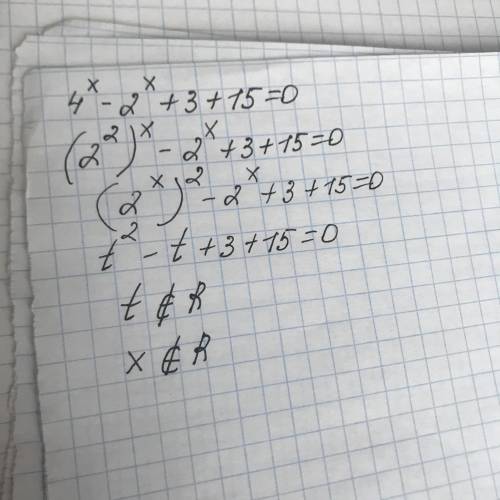 4^x - 2^x + 3 + 15 = 0
(2^2)^x - 2^x + 3 + 15 = 0
(2^x)^2 - 2^x + 3 + 15 = 0
t^2 - t + 3 + 15 = 0
t ∉ R
x ∉ R